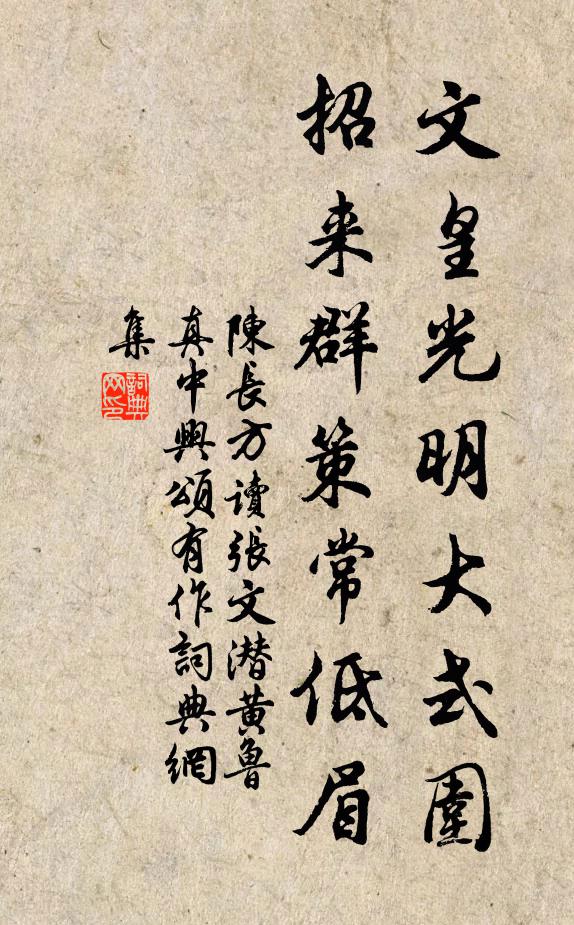 文皇光明大式圍
招来群策常低眉
陳長方讀張文潜黄魯
真中興頌有作詞典網
集
詞典網印